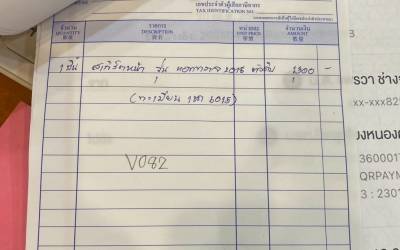 เลขประจำตัวผู้เสียภาษีอากร
TAX IDENTIFICATION NO.
จำนวน
QUANTITY
数量
รายการ
DESCRIPTION
貨名
หน่วยละ
UNIT PRICE
單價
จำนวนเงิน
AMOUNT
金額
1 ชิ้น สเกิร์ตหน้า รุ่น 2018 2300 -
(ทะเบียน 6015)
V082
รวา ช่าง
xx-xxx825
งหนอง
3600017
QRPAYM
: 2301